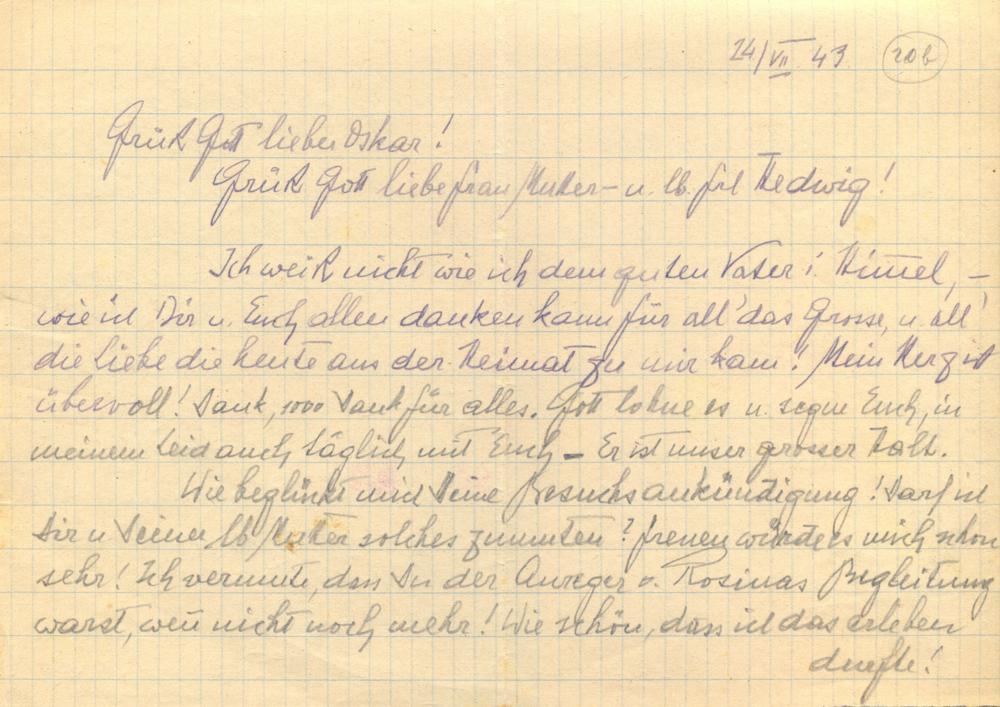 24/VII 43 20b
Grüß Gott lieber Oskar!
Grüß Gott liebe Frau Mutter – u. lb. Frl Hedwig!
Ich weiß nicht wie ich dem guten Vater i. Himel, –
wie ich Dir u. Euch allen danken kann für all' das Grosse, u. all'
die Liebe die heute aus der Heimat zu mir kam! Mein Herz ist
übervoll! Dank, 1000 Dank für alles. Gott lohne es u. segne Euch, in
meinem Leid auch täglich mit Euch – Er ist unser grosser Halt.
Wie beglückt mich Deine Besuchsankündigung! Darf ich
Dir u Deiner lb Mutter solches zumuten? freuen würde es mich schon
sehr! Ich vermute, dass Du der Anreger v. Rosinas Begleitung
warst, wen̄ nicht noch mehr! Wie schön, dass ich das erleben
durfte!